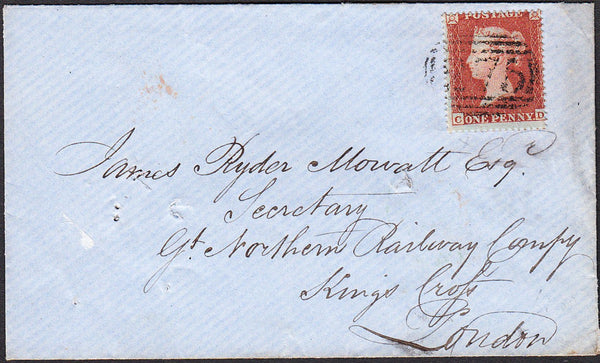 POSTAGE
75
C ONE PENNY D
James Ryder Mowatt Esqr
Secretary
Gt Northern Railway Compy
Kings Cross
London